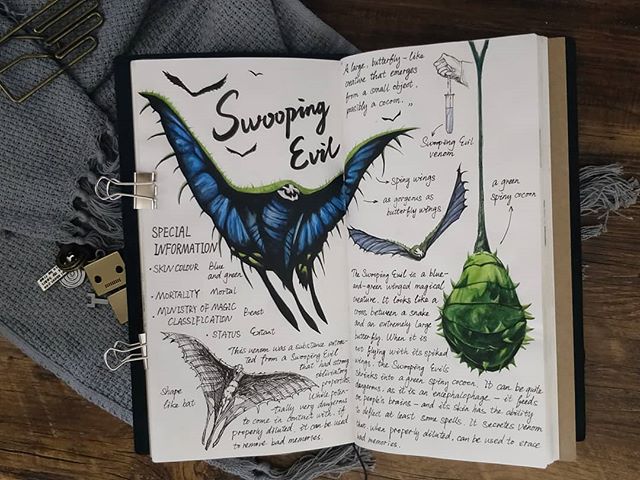 Swooping
Evil
SPECIAL
INFORMATION
• SKIN COLOUR Blue
and green
• MORTALITY Mortal
• MINISTRY OF MAGIC
CLASSIFICATION Beast
• STATUS Extant
This venom was a substance extrac-
ted from a Swooping Evil
that had strong
obliviatory
properties.
While poten-
tially very dangerous
to come in contact with, if
properly diluted, it can be used
to remove bad memories.
Shape
like bat
A large, butterfly-like
creature that emerges
from a small object,
possibly a cocoon.
Swooping Evil
venom
spiny wings
as gorgenus as
butterfly wings
a green
spiny cocoon
The Swooping Evil is a blue-
and-green winged magical
creature. It looks like a
cross between a snake
and an extremely large
butterfly. When it is
not flying with its spiked
wings, the Swooping Evils
shrinks into a green spiny cocoon. It can be quite
dangerous, as it is an encephalophage – it feeds
on people's brains – and its skin has the ability
to deflect at least some spells. It secretes venom
that, when properly diluted, can be used to erase
bad memories.